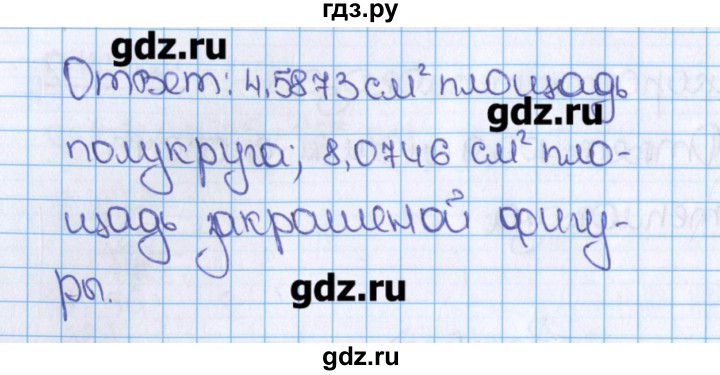 гдз.ру
gdz.ru
Ответ: 4,5873 см² площадь
gdz.ru
полукруга; 8,0746 см² пло-
щадь закрашеной фигу-
gdz.ru
ры.
gdz.ru